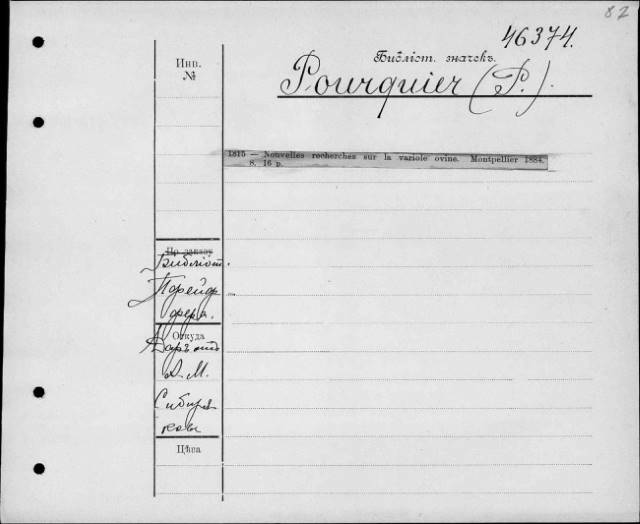 82
46374.
Инв.
№
Библіот. значекъ.
Pourquier (P.).
1815 — Nouvelles recherches sur la variole ovine. Montpellier 1884.
8. 16 p.
По заказу
Библіот.
Прейер
Откуда
Даръ отъ
А. М.
Сибиря
кова
Цѣна